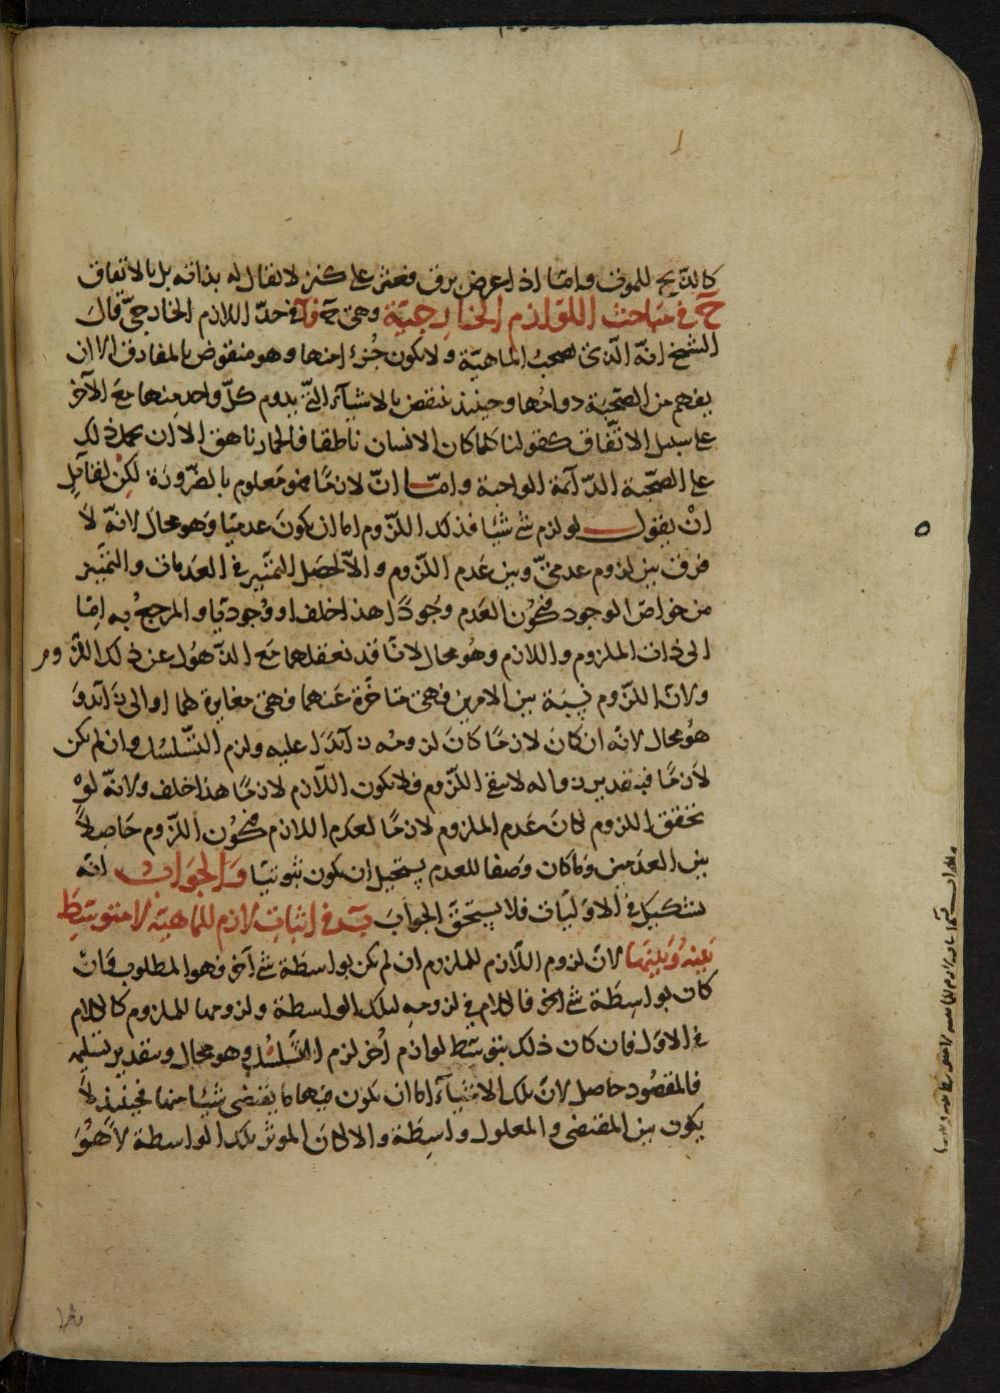 كالذبح للموت واما اذا عرض برق فعثر على كنز لا يقال له بذاته بل بالاتفاق
ح في مباحث اللوازم الخارجية وهي ح فا في حد اللازم الخارجي قال
الشيخ انه الذي يصحب الماهية ولا يكون جزءا منها وهو منقوض بالمفارق الا ان
يفهم من الصحبة دوامها وحينئذ ينتقض بالاشياء التي يدوم كل واحد منها مع الآخر
على سبيل الاتفاق كقولنا كلما كان الانسان ناطقا فالحمار ناهق الا ان يحمل ذلك
على الصحبة الدائمة الواجبة واما ان لازما فهو معلوم بالضرورة لكن لقائل
ان يقول لو لزم شئ شيئا فذلك اللزوم اما ان يكون عدميا وهو محال لانه لا
فرق بين لزوم عدمي وبين عدم اللزوم والا لحصل التميز في العدمات والتميز
من خواص الوجود فيكون العدم وجودا هذا خلف او وجوديا والمرجع به اما
الى ذات الملزوم واللازم وهو محال لانا قد نعقلهما مع الذهول عن ذلك اللزوم
ولان اللزوم نسبة بين الامرين فهي متاخرة عنهما فهي مغايرة لهما او الى زائد و
هو محال لانه ان كان لازما كان لزومه زائدا عليه ولزم التسلسل وان لم يكن
لازما فبتقدير زواله لا يبقى اللزوم فلا يكون اللازم لازما هذا خلف ولانه لو
تحقق اللزوم لكان عدم الملزوم لازما لعدم اللازم فيكون اللزوم حاصلا
بين العدمين وما كان وصفا للعدم يستحيل ان يكون ثبوتيا والجواب انه
تشكيك في الاوليات فلا يستحق الجواب ب في اثبات لازم للماهية لا متوسط
بينه وبينها لان لزوم اللازم للملزوم ان لم يكن بواسطة شئ آخر فهو المطلوب وان
كان بواسطة شئ آخر فالكلام في لزومه لتلك الواسطة ولزومها للملزوم كالكلام
في الاول فان كان ذلك بتوسط لوازم أخر لزم التسلسل وهو محال وبتقدير تسليمه
فالمقصود حاصل لان تلك الاشياء اما ان يكون فيها ما يقتضي شيئا منها فحينئذ لا
يكون بين المقتضي والمعلول واسطة والا لكان الموثر تلك الواسطة لا هو